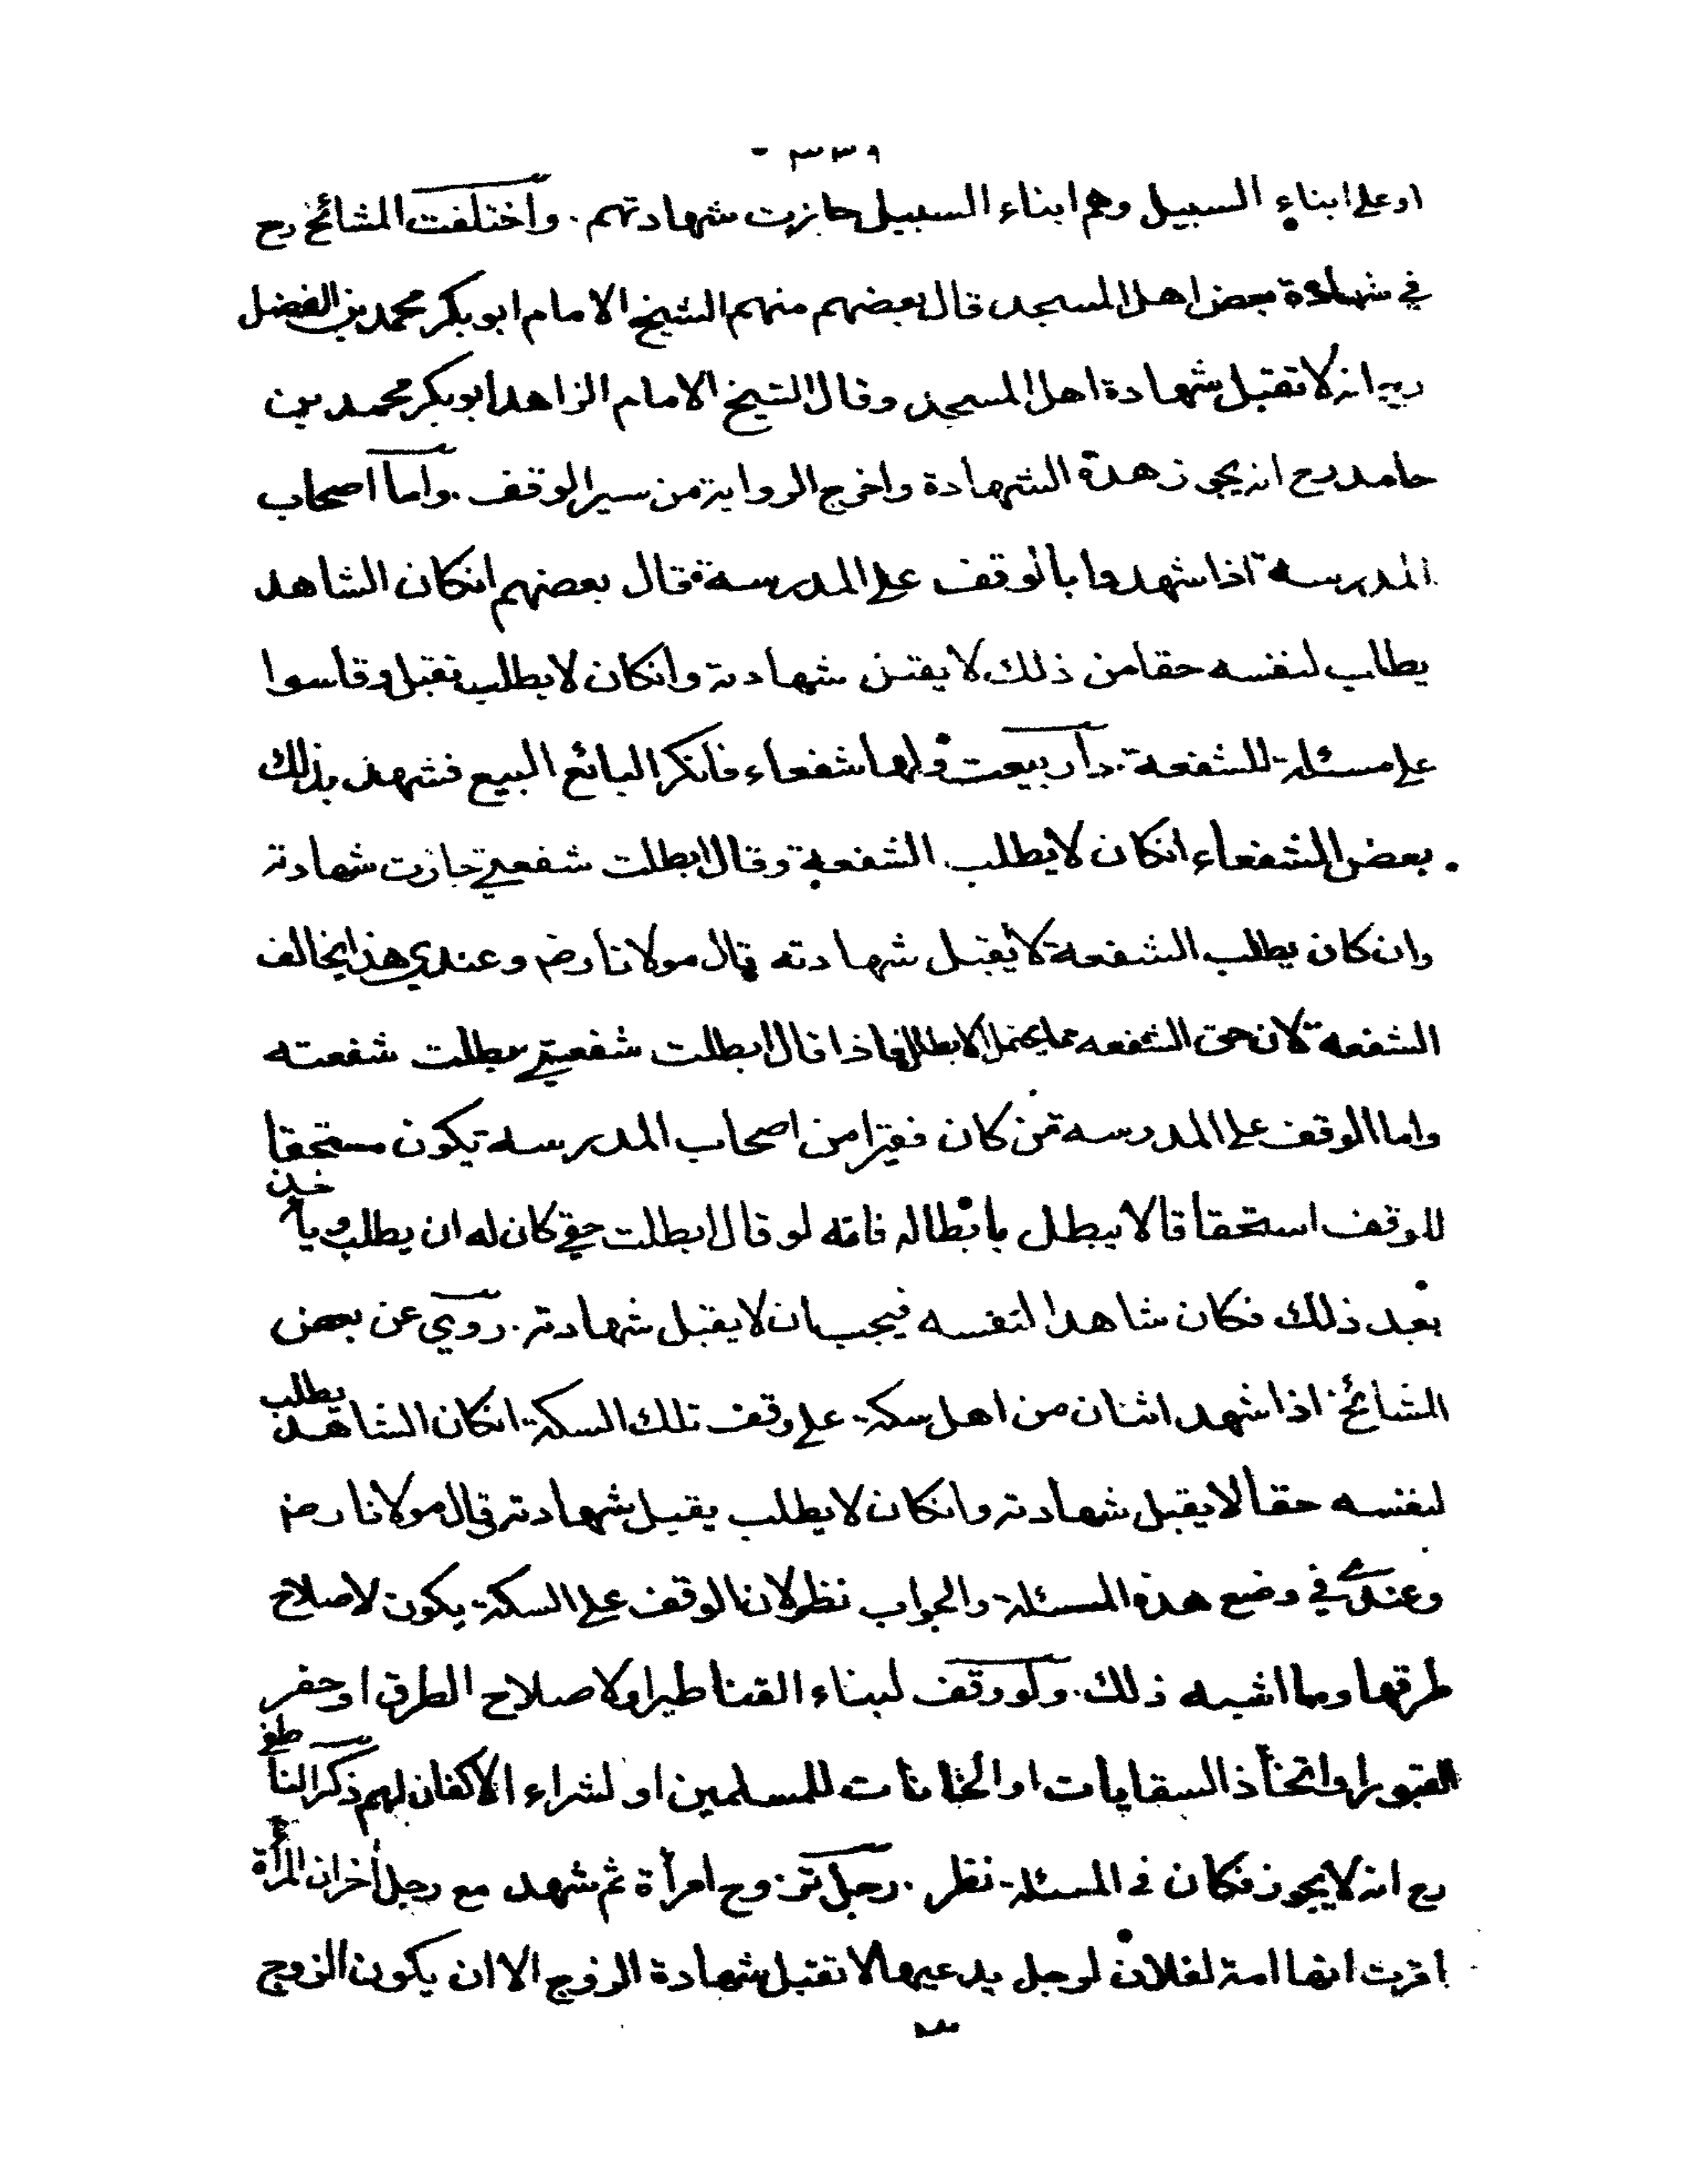 - ٣٣٩
او على ابناء السبيل وهم ابناء السبيل جازت شهادتهم . واختلفت المشائخ رح
في شهادة بعض اهل المسجد قال بعضهم منهم الشيخ الامام ابو بكر محمد بن الفضل
رح انه لا تقبل شهادة اهل المسجد وقال الشيخ الامام الزاهد ابو بكر محمد بن
حامد رح انه يجوز هذه الشهادة واخرج الرواية من سير الوقف . واما اصحاب
المدرسة اذا شهدوا بالوقف على المدرسة فقال بعضهم انكان الشاهد
يطالب لنفسه حقا من ذلك لا يقبل شهادته وانكان لا يطلب تقبل وقاسوا
على مسئلة للشفعة . دار بيعت ولها شفعاء فانكر البائع البيع فشهد بذلك
بعض الشفعاء انكان لا يطلب الشفعة وقال ابطلت شفعتي جازت شهادته
وان كان يطلب الشفعة لا يقبل شهادته قال مولانا رض وعندي هذا يخالف
الشفعة لان حق الشفعه مما يحتمل الابطال فاذا قال ابطلت شفعتي بطلت شفعته
واما الوقف على المدرسه فمن كان فقيرا من اصحاب المدرسه يكون مستحقا
للوقف استحقاقا لا يبطل بابطاله فانه لو قال ابطلت حقي كان له ان يطلب ويأخذ
بعد ذلك فكان شاهدا لنفسه فيجب ان لا يقبل شهادته . روي عن بعض
المشائخ اذا شهد اثنان من اهل سكة على وقف تلك السكة انكان الشاهد يطلب
لنفسه حقا لا يقبل شهادته وانكان لا يطلب يقبل شهادته قال مولانا رض
وعندي في وضع هذه المسئلة والجواب نظر لان الوقف على السكة يكون لاصلاح
طرقها وما اشبه ذلك . ولو وقف لبناء القناطير او لاصلاح الطرق او حفر
القبور او اتخاذ السقايات او الخانات للمسلمين او لشراء الاكفان لهم ذكر الناطفي
رح انه لا يجوز فكان في المسئلة نظر . رجل تزوج امرأة ثم شهد مع رجل أخر ان المرأة
اقرت انها امة لفلان لرجل يدعيها لا تقبل شهادة الزوج الا ان يكون الزوج